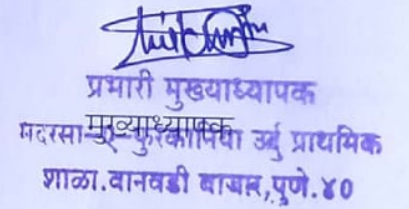 प्रभारी मुख्याध्यापक
मुख्याध्यापक
मदरसा-ए-फुरकानिया उर्दु प्राथमिक
शाळा.वानवडी बाजार,पुणे.४०